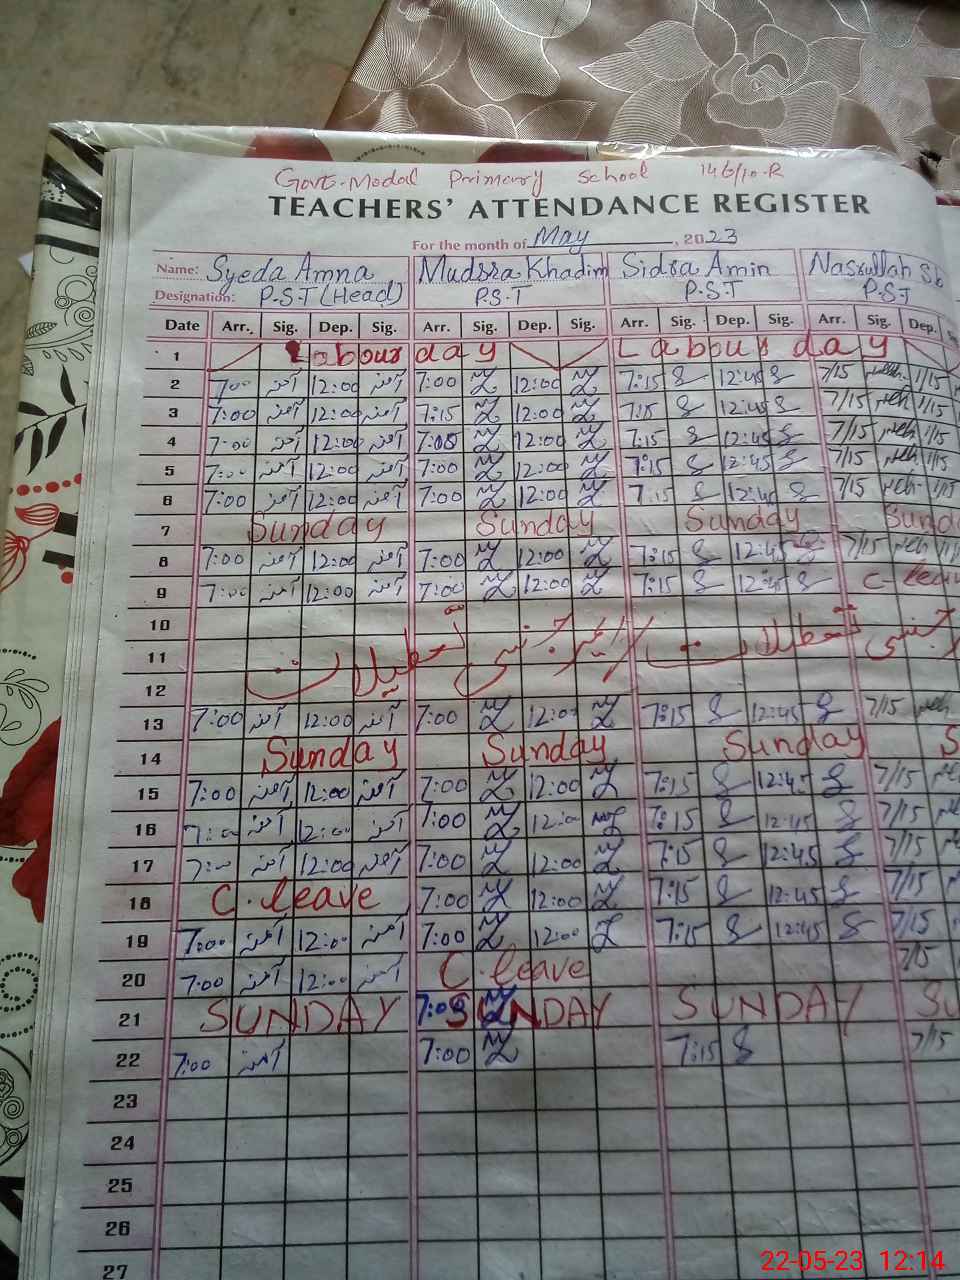 Govt-Modal Primary School 146/10-R
TEACHERS' ATTENDANCE REGISTER
For the month of May, 2023
Name: Syeda Amna Mudsra Khadim Sidra Amin Nasrullah Sb
Designation: P.S.T (Head) P.S.T P.S.T P.S.T
Date Arr. Sig. Dep. Sig. Arr. Sig. Dep. Sig. Arr. Sig. Dep. Sig. Arr. Sig. Dep.
1 Labour day Labour day
2 7:00 آمنہ 12:00 آمنہ 7:00 12:00 7:15 12:45 7/15 1/15
3 7:00 آمنہ 12:00 آمنہ 7:15 12:00 7:15 12:45 7/15 1/15
4 7:00 آمنہ 12:00 آمنہ 7:05 12:00 7:15 12:45 7/15 1/15
5 7:00 آمنہ 12:00 آمنہ 7:00 12:00 7:15 12:45 7/15 1/15
6 7:00 آمنہ 12:00 آمنہ 7:00 12:00 7:15 12:45 7/15 1/15
7 Sunday Sunday Sunday Sund
8 7:00 آمنہ 12:00 آمنہ 7:00 12:00 7:15 12:45 7/15 1/15
9 7:00 آمنہ 12:00 آمنہ 7:00 12:00 7:15 12:45 C-leav
10
11 ایمرجنسی تعطیلات تعطیلات
12
13 7:00 آمنہ 12:00 آمنہ 7:00 12:00 7:15 12:45 7/15 1/15
14 Sunday Sunday Sunday S
15 7:00 آمنہ 12:00 آمنہ 7:00 12:00 7:15 12:45 7/15
16 7:00 آمنہ 12:00 آمنہ 7:00 12:00 7:15 12:45 7/15
17 7:00 آمنہ 12:00 آمنہ 7:00 12:00 7:15 12:45 7/15
18 C.leave 7:00 12:00 7:15 12:45 7/15
19 7:00 آمنہ 12:00 آمنہ 7:00 12:00 7:15 12:45 7/15
20 7:00 آمنہ 12:00 آمنہ C.leave 7/15
21 SUNDAY SUNDAY SUNDAY SU
22 7:00 آمنہ 7:00 7:15 7/15
23
24
25
26
27
22-05-23 12:14